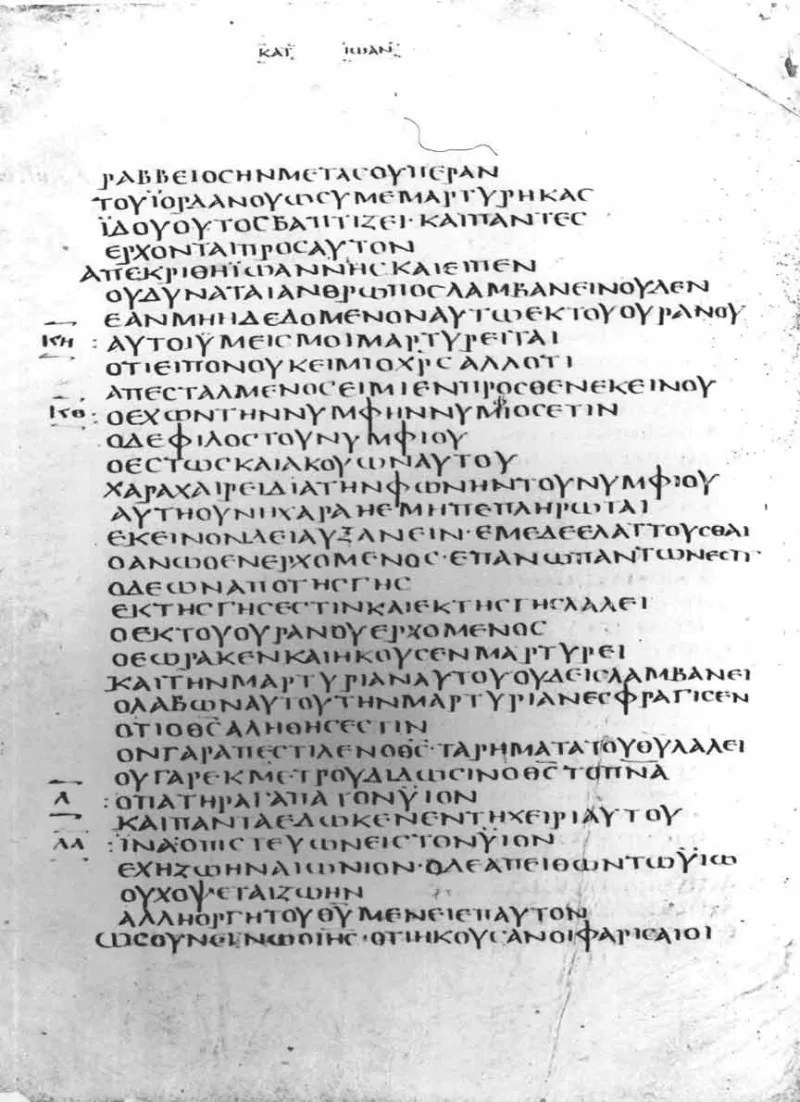 ΚΑΤ ΙΩΑΝ
ΡΑΒΒΕΙΟϹΗΝΜΕΤΑϹΟΥΠΕΡΑΝ
ΤΟΥΪΟΡΔΑΝΟΥΩϹΥΜΕΜΑΡΤΥΡΗΚΑϹ
ΪΔΟΥΟΥΤΟϹΒΑΠΤΙΖΕΙ·ΚΑΙΠΑΝΤΕϹ
ΕΡΧΟΝΤΑΙΠΡΟϹΑΥΤΟΝ
ΑΠΕΚΡΙΘΗΪΩΑΝΝΗϹΚΑΙΕΙΠΕΝ
ΟΥΔΥΝΑΤΑΙΑΝΘΡΩΠΟϹΛΑΜΒΑΝΕΙΝΟΥΔΕΝ
ΕΑΝΜΗΗΔΕΔΟΜΕΝΟΝΑΥΤΩΕΚΤΟΥΟΥΡΑΝΟΥ
ΚΗ :ΑΥΤΟΙΫΜΕΙϹΜΟΙΜΑΡΤΥΡΕΙΤΑΙ
ΟΤΙΕΙΠΟΝΟΥΚΕΙΜΙΟΧΡϹΑΛΛΟΤΙ
ΑΠΕϹΤΑΛΜΕΝΟϹΕΙΜΙΕΝΠΡΟϹΘΕΝΕΚΕΙΝΟΥ
ΚΘ :ΟΕΧΩΝΤΗΝΝΥΜΦΗΝΝΥΜΙΟϹΕΤΙΝ
ΟΔΕΦΙΛΟϹΤΟΥΝΥΜΦΙΟΥ
ΟΕϹΤΩϹΚΑΙΑΚΟΥΩΝΑΥΤΟΥ
ΧΑΡΑΧΑΙΡΕΙΔΙΑΤΗΝΦΩΝΗΝΤΟΥΝΥΜΦΙΟΥ
ΑΥΤΗΟΥΝΗΧΑΡΑΗΕΜΗΠΕΠΛΗΡΩΤΑΙ
ΕΚΕΙΝΟΝΔΕΙΑΥΞΑΝΕΙΝ·ΕΜΕΔΕΕΛΑΤΤΟΥϹΘΑΙ
ΟΑΝΩΘΕΝΕΡΧΟΜΕΝΟϹ·ΕΠΑΝΩΠΑΝΤΩΝΕϹΤΙ
ΟΔΕΩΝΑΠΟΤΗϹΓΗϹ
ΕΚΤΗϹΓΗϹΕϹΤΙΝΚΑΙΕΚΤΗϹΓΗϹΛΑΛΕΙ
ΟΕΚΤΟΥΟΥΡΑΝΟΥΕΡΧΟΜΕΝΟϹ
ΟΕΩΡΑΚΕΝΚΑΙΗΚΟΥϹΕΝΜΑΡΤΥΡΕΙ
ΚΑΙΤΗΝΜΑΡΤΥΡΙΑΝΑΥΤΟΥΟΥΔΕΙϹΛΑΜΒΑΝΕΙ
ΟΛΑΒΩΝΑΥΤΟΥΤΗΝΜΑΡΤΥΡΙΑΝΕϹΦΡΑΓΙϹΕΝ
ΟΤΙΟΘϹΑΛΗΘΗϹΕϹΤΙΝ
ΟΝΓΑΡΑΠΕϹΤΙΛΕΝΟΘϹ·ΤΑΡΗΜΑΤΑΤΟΥΘΥΛΑΛΕΙ
ΟΥΓΑΡΕΚΜΕΤΡΟΥΔΙΔΩϹΙΝΟΘϹΤΟΠΝΑ
Λ :ΟΠΑΤΗΡΑΓΑΠΑΤΟΝΫΙΟΝ
ΚΑΙΠΑΝΤΑΕΔΩΚΕΝΕΝΤΗΧΕΙΡΙΑΥΤΟΥ
ΛΑ :ΪΝΑΟΠΙϹΤΕΥΩΝΕΙϹΤΟΝΫΙΟΝ
ΕΧΗΖΩΗΝΑΙΩΝΙΟΝ·ΟΔΕΑΠΕΙΘΩΝΤΩΫΙΩ
ΟΥΧΟΨΕΤΑΙΖΩΗΝ
ΑΛΛΗΟΡΓΗΤΟΥΘΥΜΕΝΕΙΕΠΑΥΤΟΝ
ΩϹΟΥΝΕΓΝΩΟΙΗϹ·ΟΤΙΗΚΟΥϹΑΝΟΙΦΑΡΙϹΑΙΟΙ